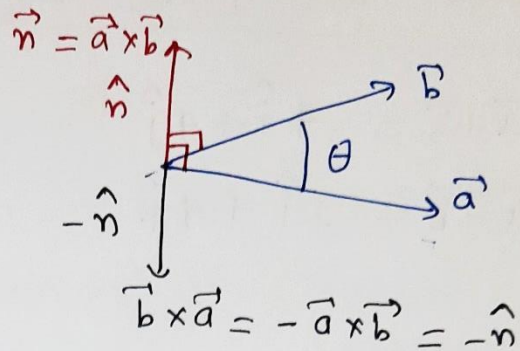 n⃗ = a⃗ × b⃗
n̂
b⃗
θ
a⃗
-n̂
b⃗ × a⃗ = -a⃗ × b⃗ = -n̂